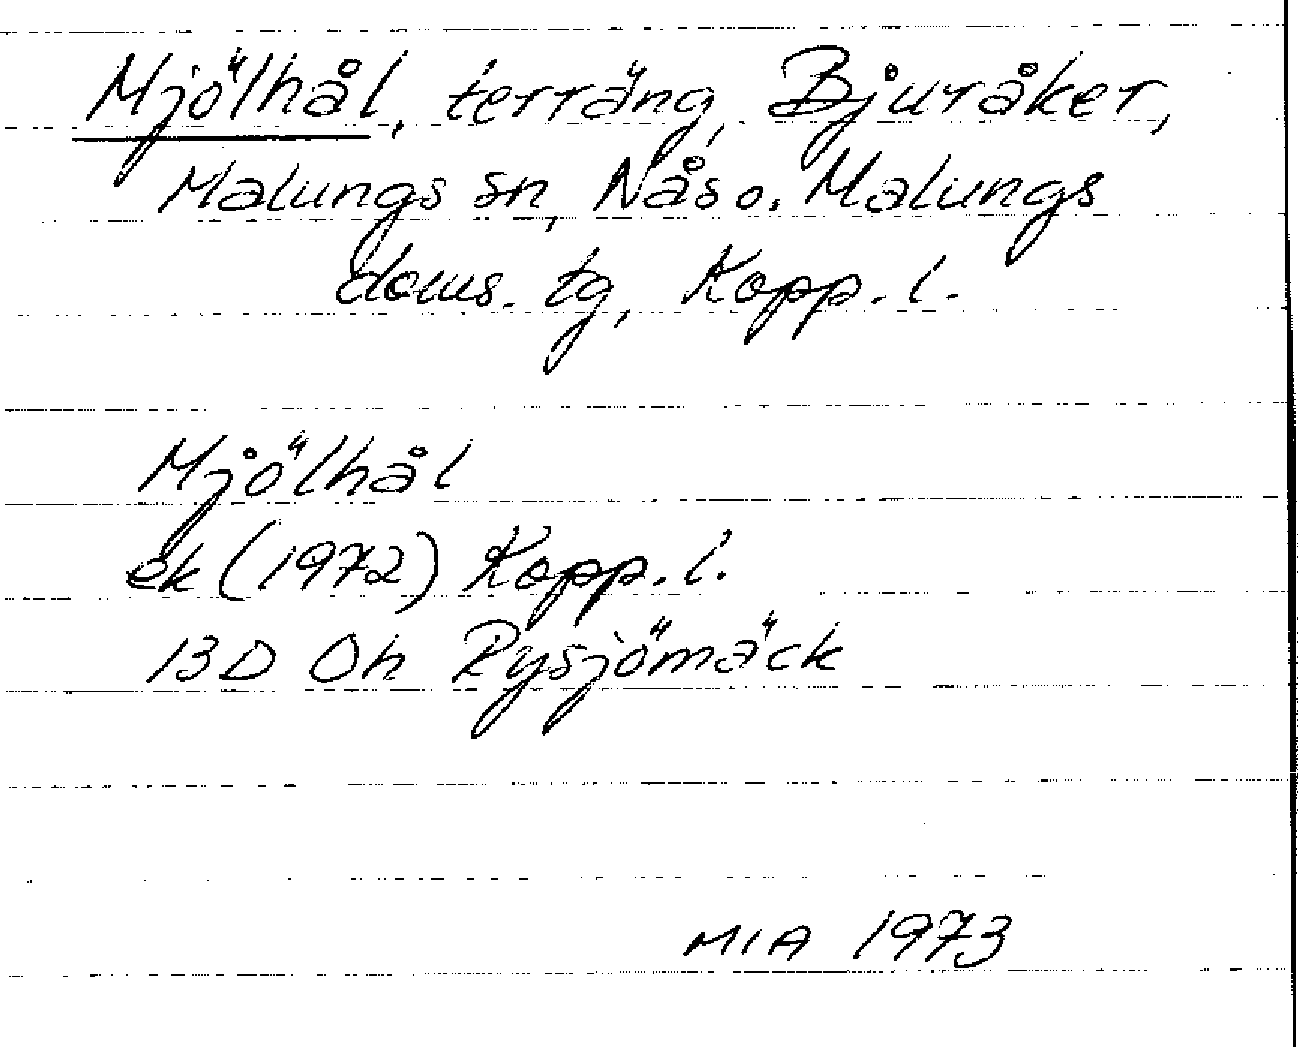 Mjölhål, terräng, Bjuråker,
Malungs sn, Nås o. Malungs
doms. tg, Kopp. l.
Mjölhål
ek (1972) Kopp. l.
13D Oh Rysjömäck
MIA 1973